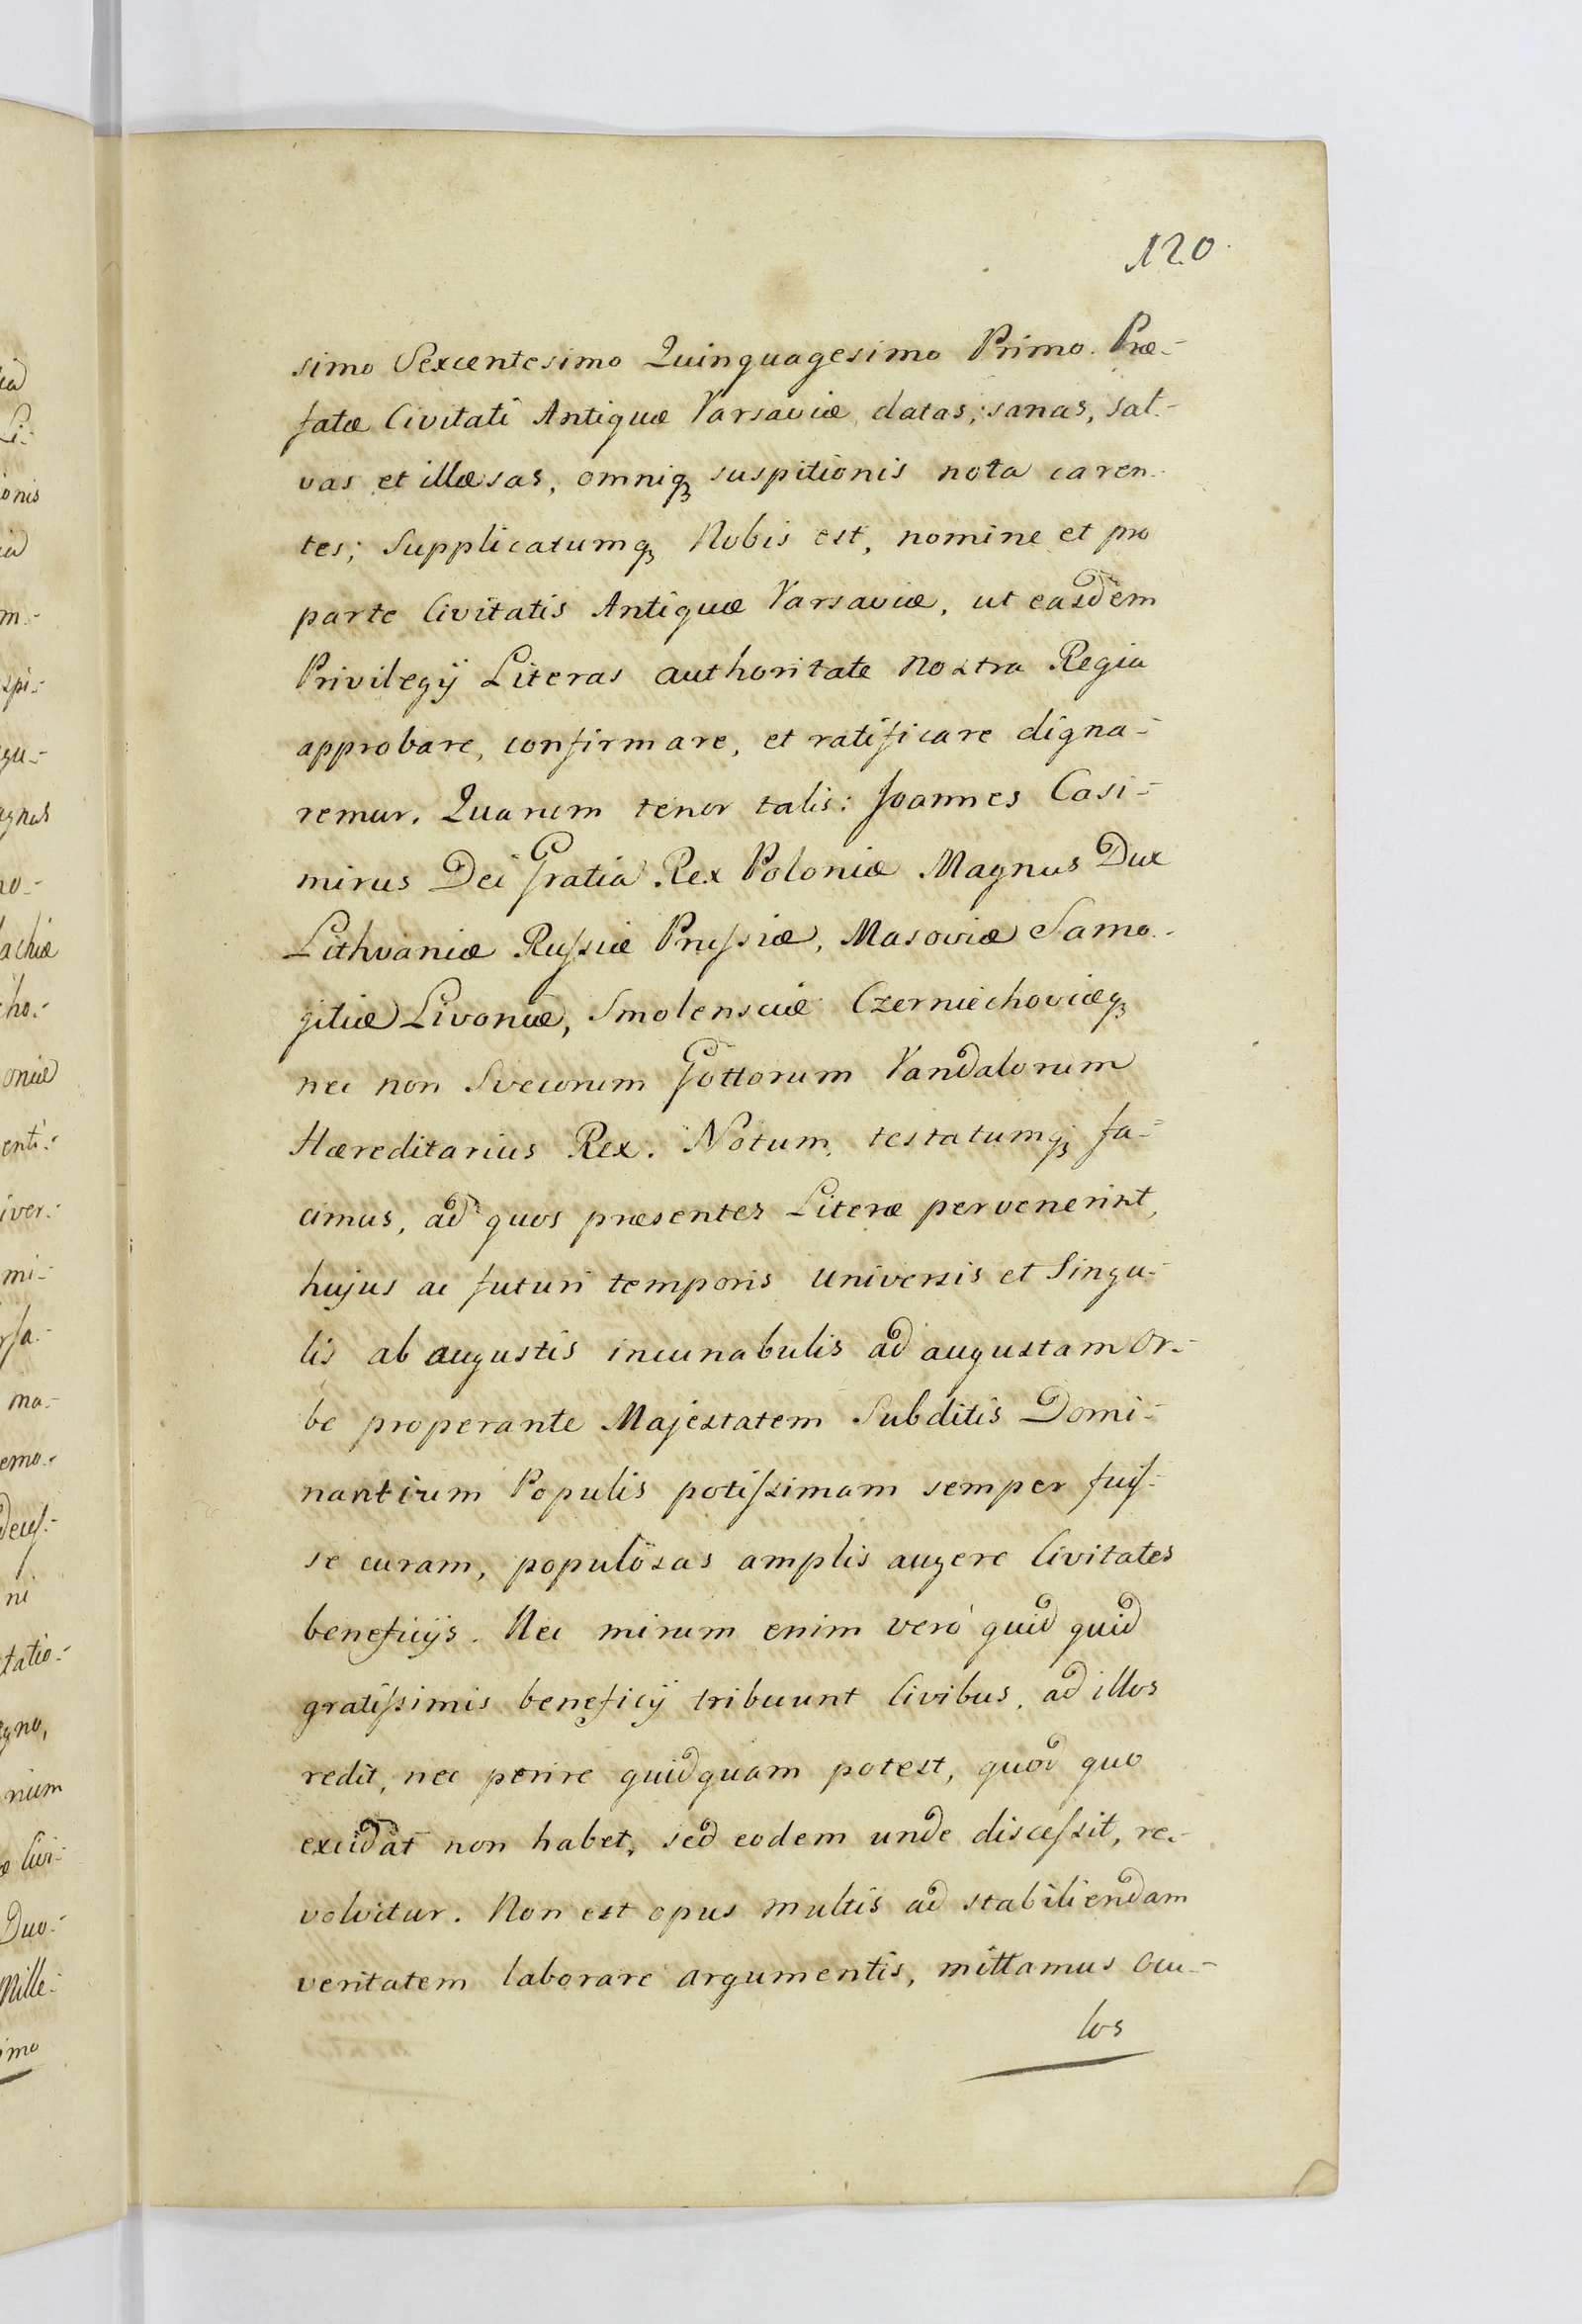 120
simo Sexcentesimo Quinquagesimo Primo. Præ-
fatæ Civitati Antiquæ Varsaviæ datas, sanas, sal-
vas et illæsas, omniq3 suspitionis nota caren-
tes; Supplicatumq3 Nobis est, nomine et pro
parte Civitatis Antiquæ Varsaviæ, ut easdem
Privilegÿ Literas authoritate nostra Regia
approbare, confirmare, et ratificare digna-
remur. Quarum tenor talis: Joannes Casi-
mirus Dei Gratia Rex Poloniæ Magnus Dux
Lithvaniæ Rufsiæ Prufsiæ, Masoviæ Samo-
gitiæ Livoniæ, Smolensciæ Czerniechoviæq3
nec non Svecorum Gottorum Vandalorum
Hæreditarius Rex. Notum testatumq3 fa-
cimus, ad quos præsentes Literæ pervenerint,
hujus ac futuri temporis universis et Singu-
lis ab augustis incunabulis ad augustam Or-
be properante Majestatem Subditis Domi-
nantium Populis potifsimam semper fuif-
se curam, populosas amplis augere Civitates
beneficÿs. Nec mirum enim verò quid quid
gratifsimis beneficÿ tribuunt Civibus, ad illos
redit, nec perire quidquam potest, quod quo
excidat non habet, sed eodem unde discefsit, re-
volvitur. Non est opus multis ad stabiliendam
veritatem laborare argumentis, mittamus ocu-
los